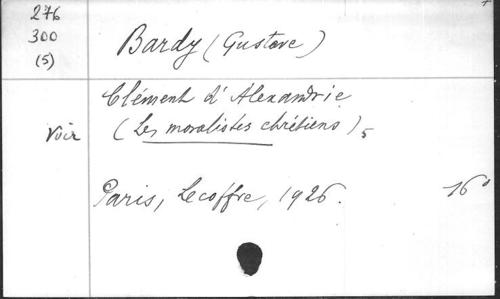 276
300
(5)
Bardy (Gustave)
Clément d'Alexandrie
Voir (Les moralistes chrétiens) 5
Paris, Lecoffre, 1926. 16°